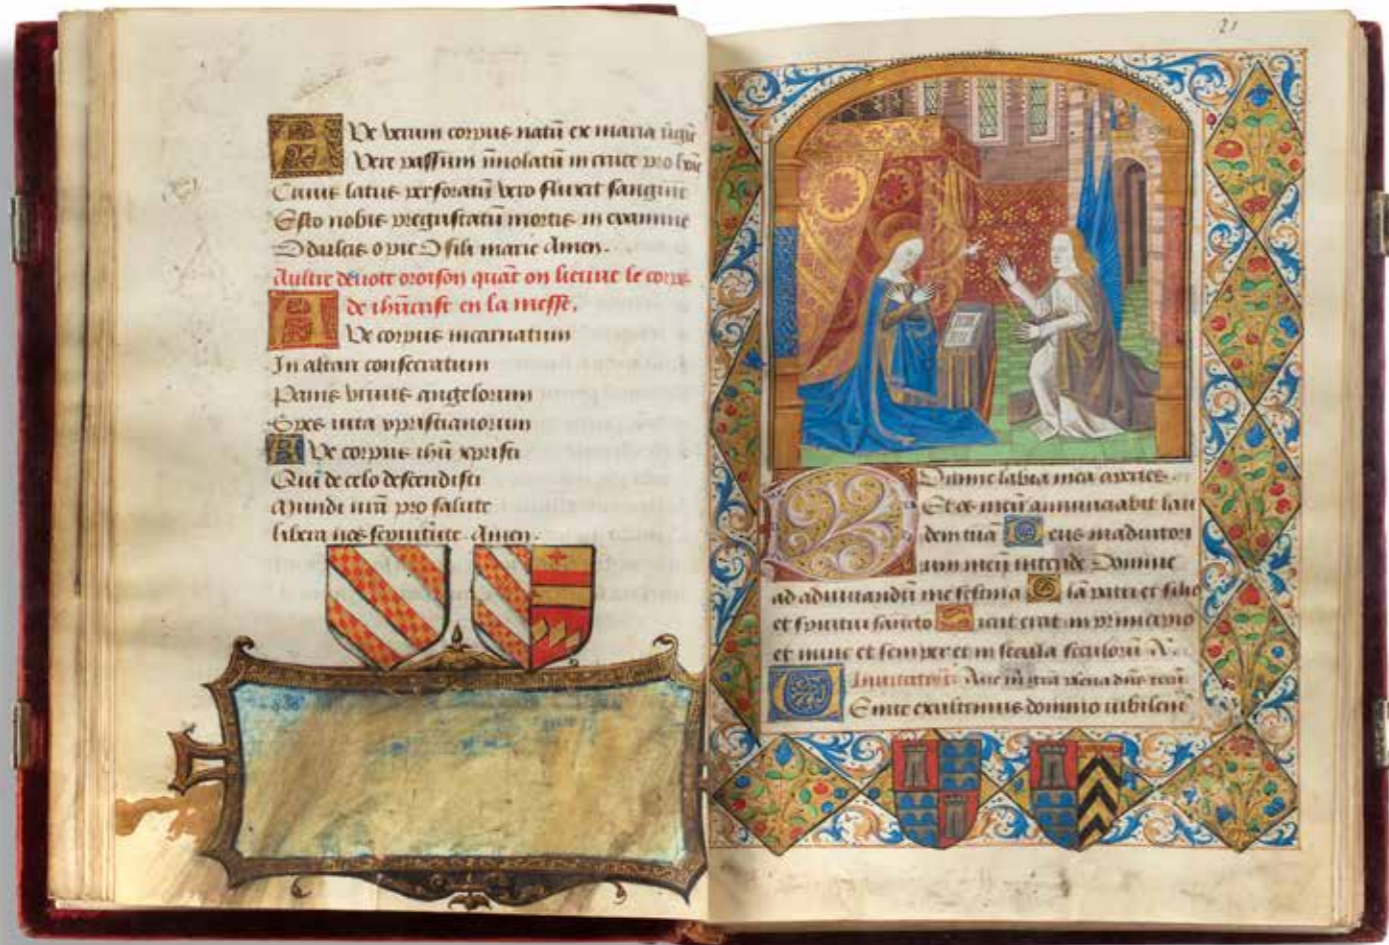 Ave verum corpus natū ex maria v̄gīe
Vere passum īmolatū in cruce pro hōīe
Cuius latus perforatū vero fluxit sanguine
Esto nobis pregustatū mortis in examine
O dulcis o pie O fili marie Amen.
Aultre deuote oroison quāt on lieuue le corps
de ihūcrist en la messe.
Ave corpus incarnatum
In altari consecratum
Panis viuus angelorum
Spes vita xpristianorum
Ave corpus ihū xpristi
Qui de celo descendisti
Mundi
pro salute
libera nos Amen.
21
Domine labia mea aperies.
Et os meū annunciabit lau
dem tuā Deus in adiutori
um meū intende Domine
ad adiuuandū me festina Glā patri et filio
et spiritui sancto Sicut erat in principio
et nunc et semper et in secula seculorū A.
Inuitatoriū. Aue m̄ grā plena dn̄s tecū.
Venite exultemus domino iubilem